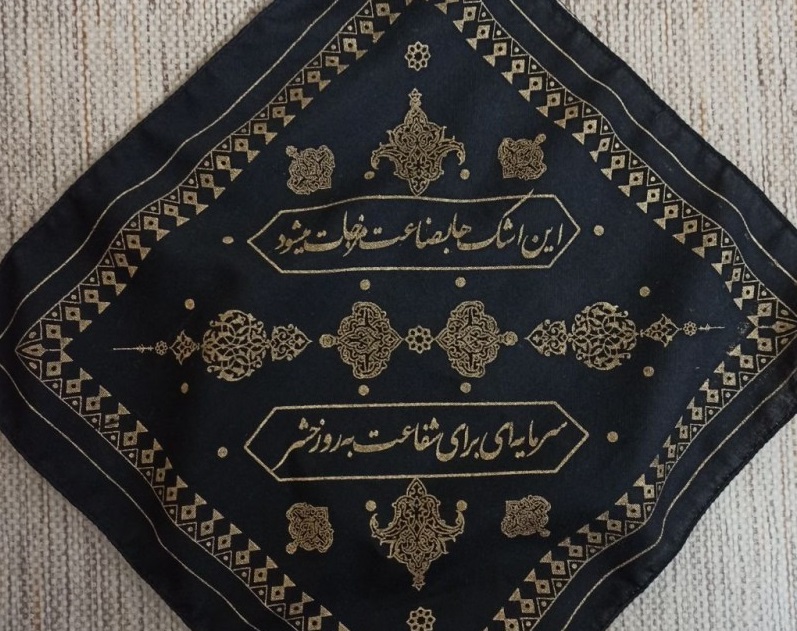 این اشک ها بضاعت روز جزات میشود
سرمایه‌ای برای شفاعت به روز حشر